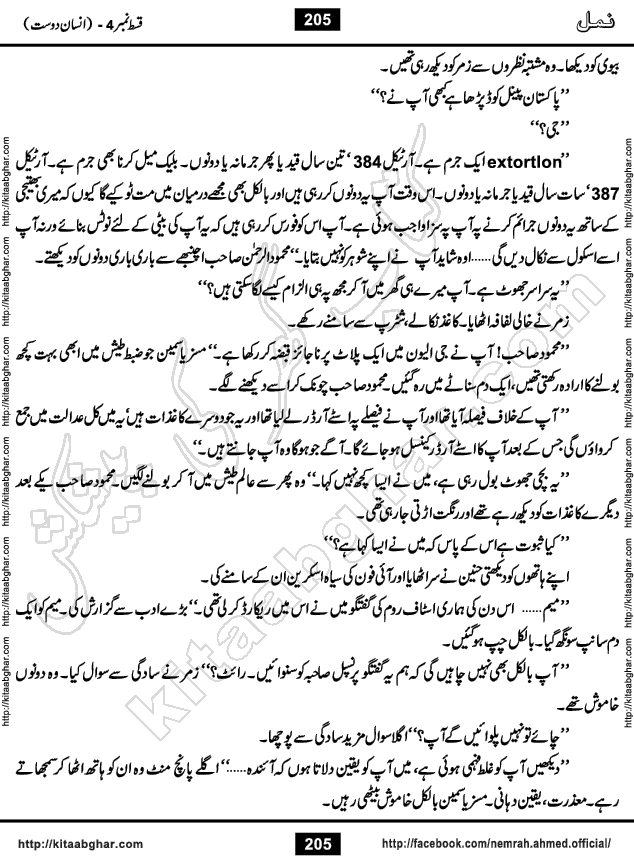 نمل 205 قسط نمبر 4 - (انسان دوست)
بیوی کو دیکھا۔ وہ مشتبہ نظروں سے زمر کو دیکھ رہی تھیں۔
’’پاکستان پینل کوڈ پڑھا ہے کبھی آپ نے؟‘‘
’’جی؟‘‘
’’extortion ایک جرم ہے۔ آرٹیکل 384 ‘ تین سال قید یا پھر جرمانہ یا دونوں۔ بلیک میل کرنا بھی جرم ہے۔ آرٹیکل
387 ‘ سات سال قید یا جرمانہ یا دونوں۔ اس وقت آپ یہ دونوں کر رہی ہیں اور بالکل بھی مجھے درمیان میں مت ٹوکیے گا کیوں کہ میری بھتیجی
کے ساتھ یہ دونوں جرائم کرنے پہ آپ پہ سزا واجب ہوتی ہے۔ آپ اس کو فورس کر رہی ہیں کہ یہ آپ کی بیٹی کے لئے نوٹس بنائے ورنہ آپ
اسے اسکول سے نکال دیں گی ...... اوہ شاید آپ نے اپنے شوہر کو نہیں بتایا۔‘‘ محمود الرحمٰن صاحب اچنبھے سے باری باری دونوں کو دیکھتے۔
’’یہ سراسر جھوٹ ہے۔ آپ میرے ہی گھر میں آ کر مجھ پہ ہی الزام کیسے لگا سکتی ہیں؟‘‘
زمر نے خاکی لفافہ اٹھایا۔ کاغذ نکالے، شٹرپ سے سامنے رکھے۔
’’محمود صاحب! آپ نے جی الیون میں ایک پلاٹ پر ناجائز قبضہ کر رکھا ہے۔‘‘ مسز یاسمین جو ضبط طیش میں ابھی بہت کچھ
بولنے کا ارادہ رکھتی تھیں، ایک دم سناٹے میں رہ گئیں۔ محمود صاحب چونک کر اسے دیکھنے لگے۔
’’آپ کے خلاف فیصلہ آیا تھا اور آپ نے فیصلے پہ اسٹے آرڈر لے لیا تھا اور یہ جو دوسرے کاغذات ہیں‘ یہ میں کل عدالت میں جمع
کرواؤں گی جس کے بعد آپ کا اسٹے آرڈر کینسل ہو جائے گا۔ آگے جو ہو گا وہ آپ جانتے ہیں۔‘‘
’’یہ بچی جھوٹ بول رہی ہے، میں نے ایسا کچھ نہیں کہا۔‘‘ وہ پھر سے عالم طیش میں آ کر بولنے لگیں۔ محمود صاحب یکے بعد
دیگرے کاغذات کو دیکھ رہے تھے اور رنگت اڑتی جا رہی تھی۔
’’کیا ثبوت ہے اس کے پاس کہ میں نے ایسا کہا ہے؟‘‘
اپنے ہاتھوں کو دیکھتی حنین نے سر اٹھایا اور آئی فون کی سیاہ اسکرین ان کے سامنے کی۔
’’میم ...... اس دن کی ہماری اسٹاف روم کی گفتگو میں نے اس میں ریکارڈ کر لی تھی۔‘‘ بڑے ادب سے گزارش کی۔ میم کو ایک
دم سانپ سونگھ گیا۔ بالکل چپ ہو گئیں۔
’’آپ بالکل بھی نہیں چاہیں گی کہ ہم یہ گفتگو پرنسپل صاحبہ کو سنوائیں۔ رائٹ؟‘‘ زمر نے سادگی سے سوال کیا۔ وہ دونوں
خاموش تھے۔
’’چائے تو نہیں پلوائیں گے آپ؟‘‘ اگلا سوال مزید سادگی سے پوچھا۔
’’دیکھیں آپ کو غلط فہمی ہوئی ہے، میں آپ کو یقین دلاتا ہوں کہ آئندہ ......‘‘ اگلے پانچ منٹ وہ ان کو ہاتھ اٹھا کر سمجھاتے
رہے۔ معذرت، یقین دہانی۔ مسز یاسمین بالکل خاموش بیٹھی رہیں۔
http://kitaabghar.com 205 http://facebook.com/nemrah.ahmed.official/
http://kitaabghar.com http://kitaabghar.com http://kitaabghar.com http://kitaabghar.com http://kitaabghar.com http://kitaabghar.com
http://kitaabghar.com http://kitaabghar.com http://kitaabghar.com http://kitaabghar.com http://kitaabghar.com http://kitaabghar.com
کتاب گھر کی پیشکش
kitaabghar.com